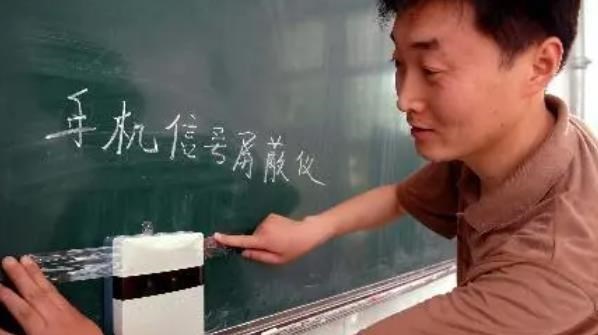 手机信号屏蔽仪